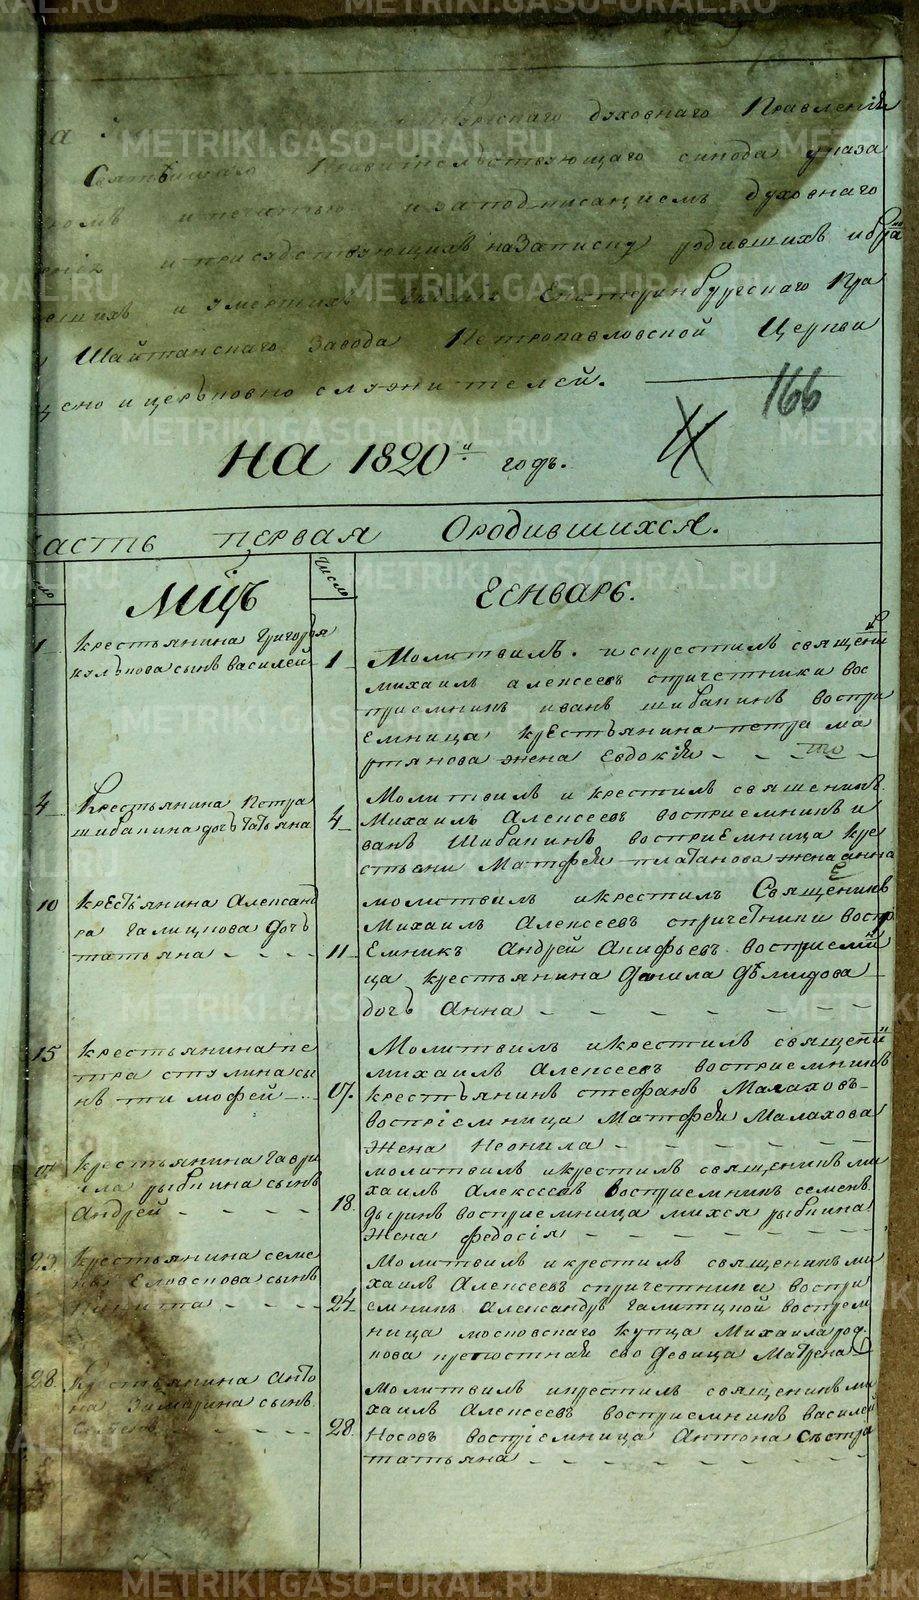 духовнаго Правленія
Святѣйшаго Правительствующаго синода указа
и печатью и за подписаціемъ духовнаго
и присудствующихъ на записку родившихъ и бра
и умершихъ Екатеринбургскаго
Шайтанскаго завода Петропавловской Церкви
ено и церковно служителей.
166
на 1820й годъ.
асть первая О родившихся.
Мцъ
Число
Генварь.
1
крестьянина Григорья
кулькова сынъ василей
1
Молитвилъ. и крестилъ священ
михаилъ алексеевъ спричетники вос
приемникъ иванъ шибанинъ воспри
емница крестьянина петра ма
ртянова жена Евдокия
4
Крестьянина Петра
шибанина дочь татьяна
4
Молитвилъ и крестилъ священикъ
Михаилъ Алексеевъ восприемникъ и
ванъ Шибанинъ восприемница кре
стьени Матфей платанова жена анна
10
крестьянина Александ
ра Галицкова дочь
татьяна
11
молитвилъ и крестилъ Священикъ
Михаилъ Алексеевъ спричетники воспр
Емникъ Андрей Алифьевъ восприемни
ца крестьянина Данила дѣмидова
дочь Анна
15
крестьянина пе
тра стулина сы
нъ тимофей
17.
Молитвилъ и крестилъ священи
михаилъ Алексеевъ восприемникъ
крестьянинъ стефанъ Малаховъ
воспріемница Матфея Малахова
жена Неонила
крестьянина гаври
ила рыбкина сынъ
Андрей
18.
молитвилъ и крестилъ священикъ ми
хаилъ Алексеевъ восприемникъ семенъ
восприемница рыбкина
жена федосія
23
крестьянина семе
на Еловскова сынъ
Никита
24
Молитвилъ и крестилъ священикъ ми
хаилъ Алексеевъ спричетники воспри
емникъ Александръ Галитцкой восприем
ница московскаго купца Михаила
крепостная ево девица Матрена
28.
Крестьянина Анто
на Зимарина сынъ
семенъ
28.
Молитвилъ и крестилъ священикъ ми
хаилъ Алексеевъ восприемникъ василей
Носовъ воспріемница Антона сестра
татьяна
METRIKI.GASO-URAL.RU